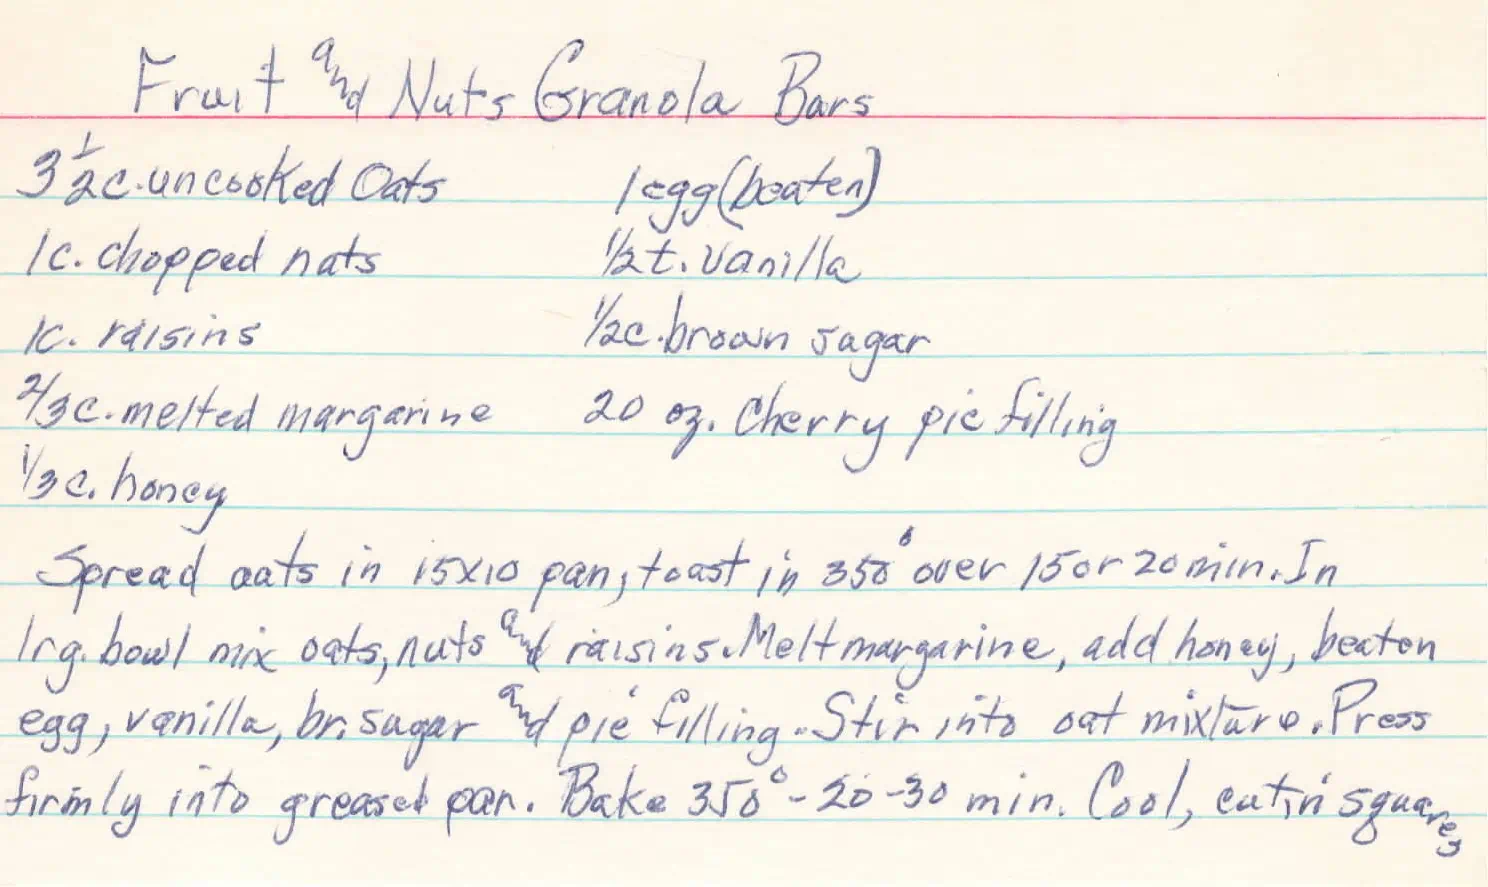 Fruit and Nuts Granola Bars
3 1/2 c. uncooked Oats
1 c. chopped nuts
1 c. raisins
2/3 c. melted margarine
1/3 c. honey
1 egg (beaten)
1/2 t. vanilla
1/2 c. brown sugar
20 oz. Cherry pie filling
Spread oats in 15x10 pan, toast in 350° over 15 or 20 min. In
lrg. bowl mix oats, nuts and raisins. Melt margarine, add honey, beaten
egg, vanilla, br. sugar and pie filling. Stir into oat mixture. Press
firmly into greased pan. Bake 350° - 20-30 min. Cool, cut in squares